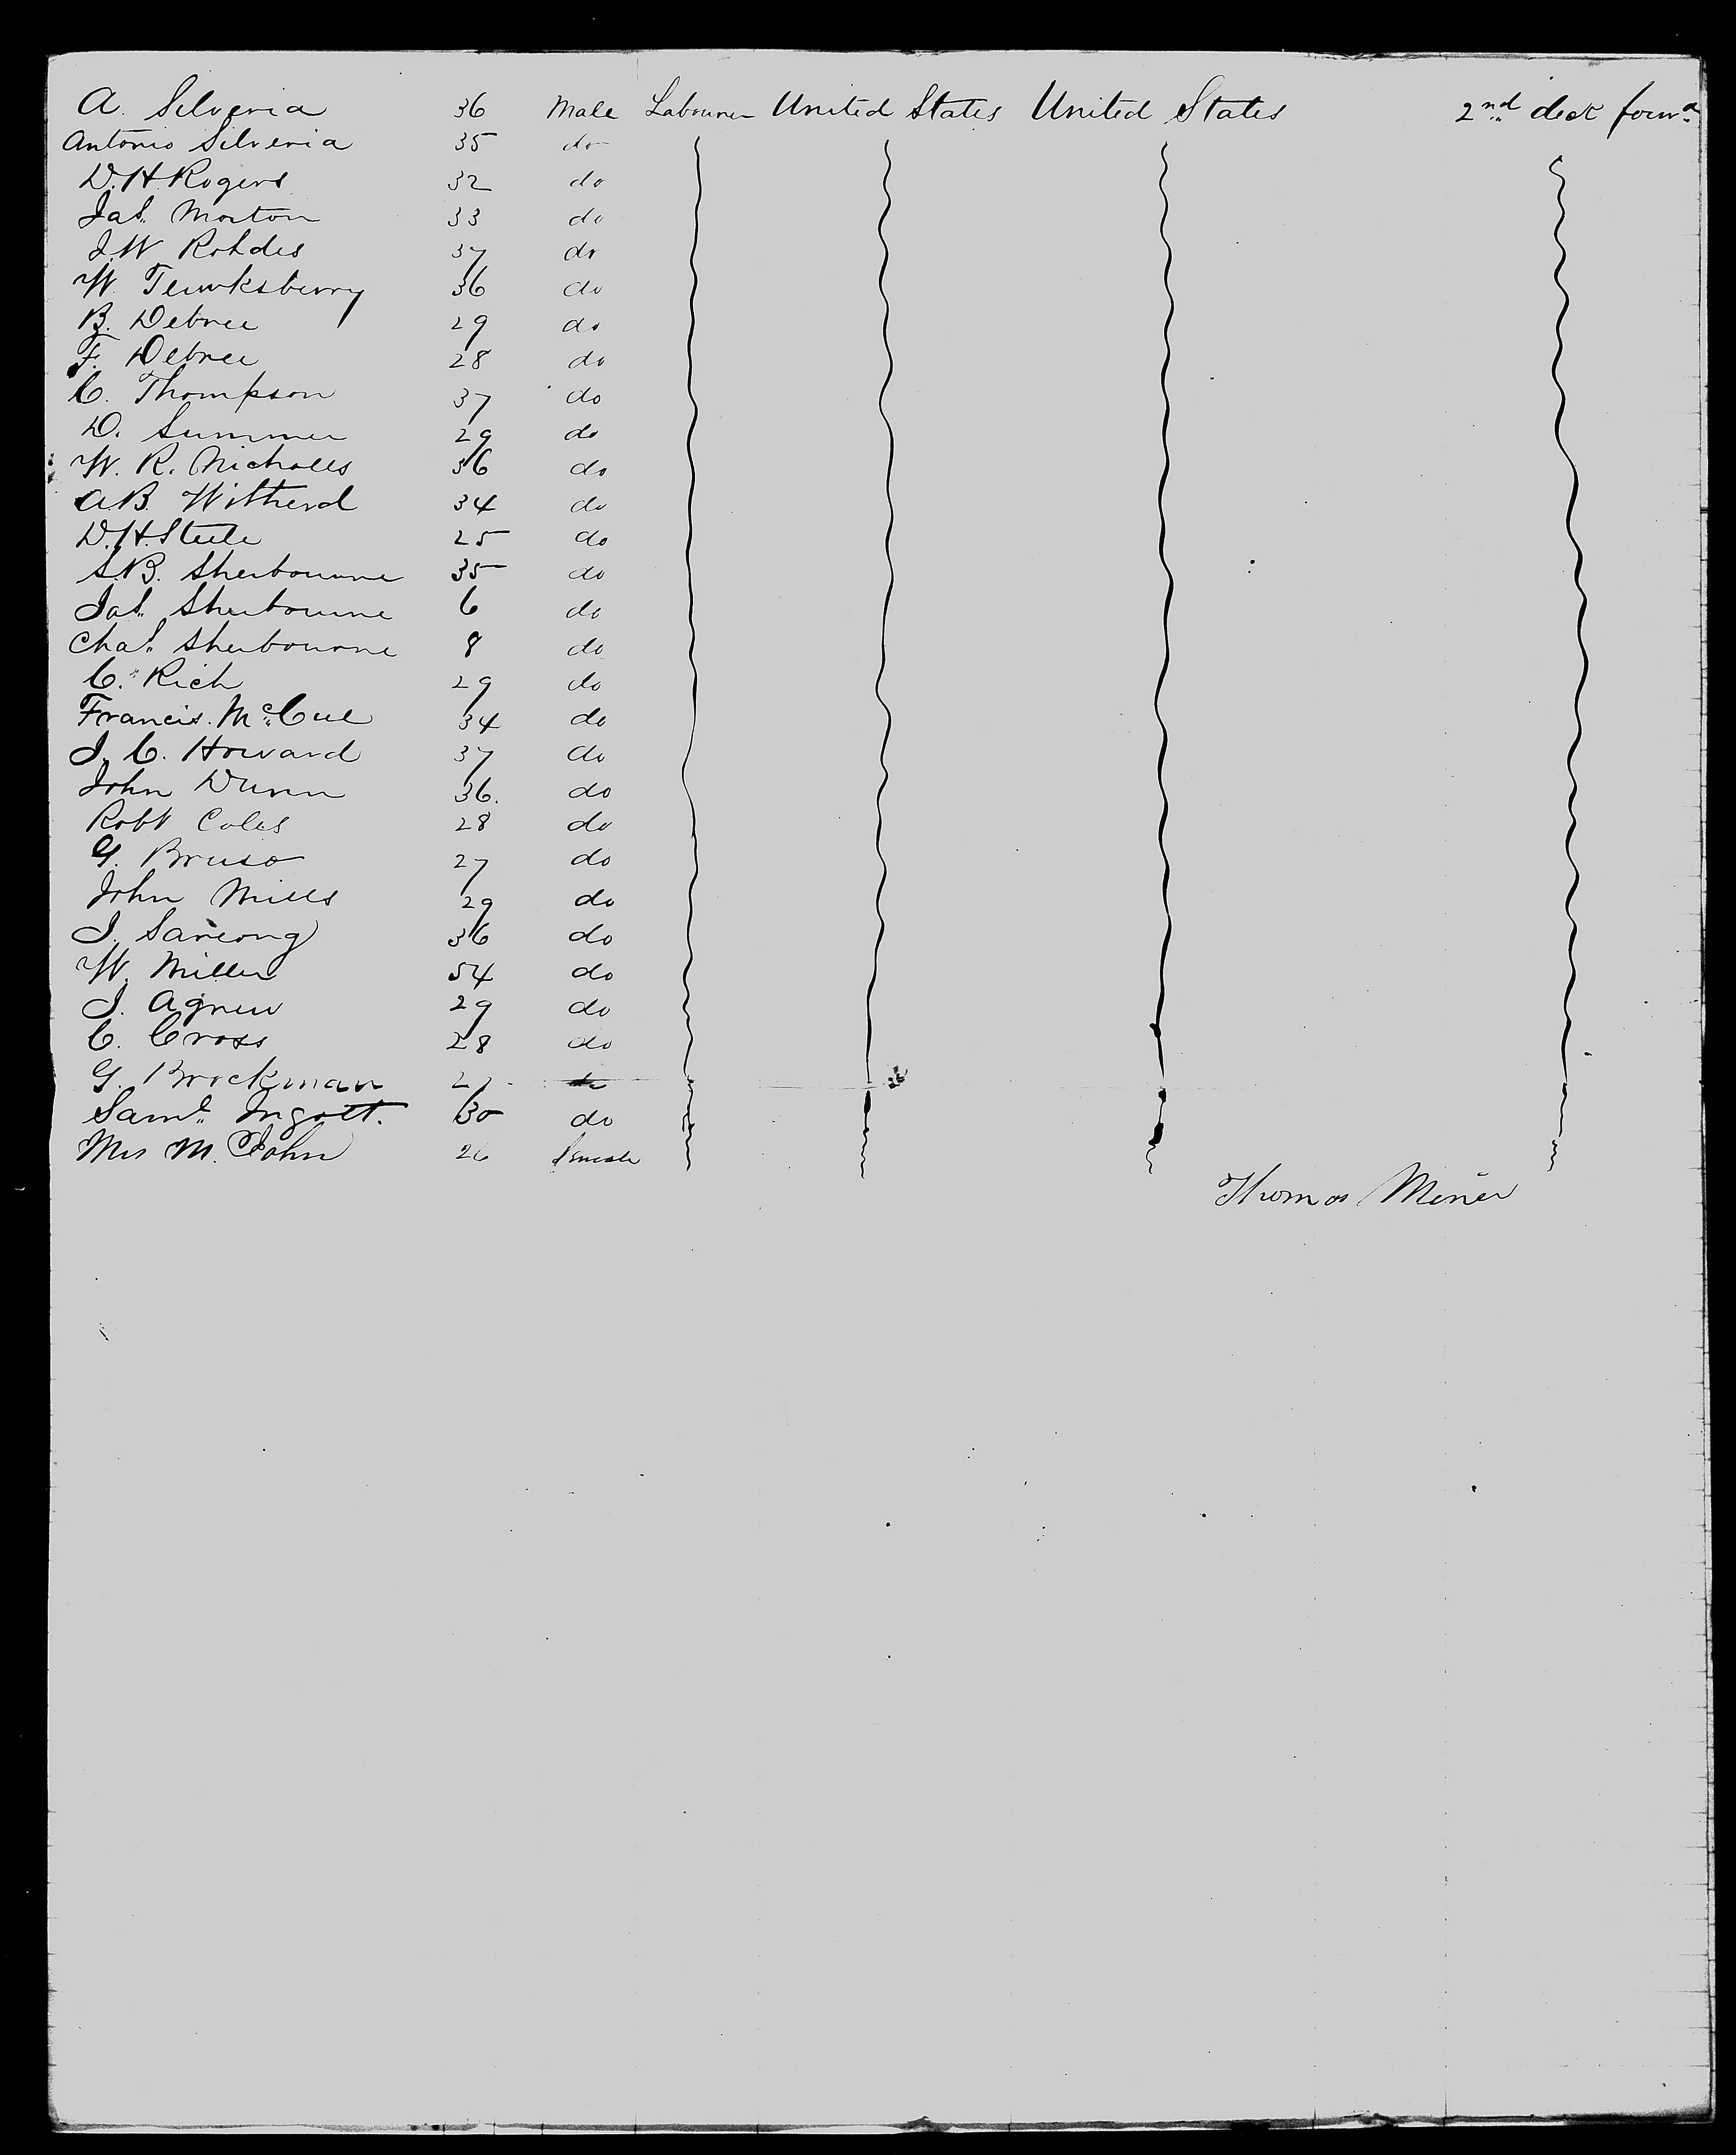 A. Silveria 36 Male Labourer United States United States 2nd deck forwd
Antonio Silveria 35 do
D. H. Rogers 32 do
Jas. Morton 33 do
J. W Rohdes 37 do
W. Tewksberry 36 do
B. Debree 29 do
F. Debree 28 do
C. Thompson 37 do
D. Summer 29 do
W. R. Nicholls 36 do
A. B. Witherd 34 do
D. H. Steele 25 do
S. B. Sherbourne 35 do
Jas. Sherbourne 6 do
Chas. Sherbourne 8 do
C. Rich 29 do
Francis McCue 34 do
J. C. Howard 37 do
John Dunn 36. do
Robt Coles 28 do
G. Bruso 27 do
John Mills 29 do
J. 36 do
W. Miller 54 do
J. Agnew 29 do
C. Cross 28 do
G. Brockman 27 do
Saml. Ingolt. 30 do
Mrs M. John 26 female
Thomas Miner